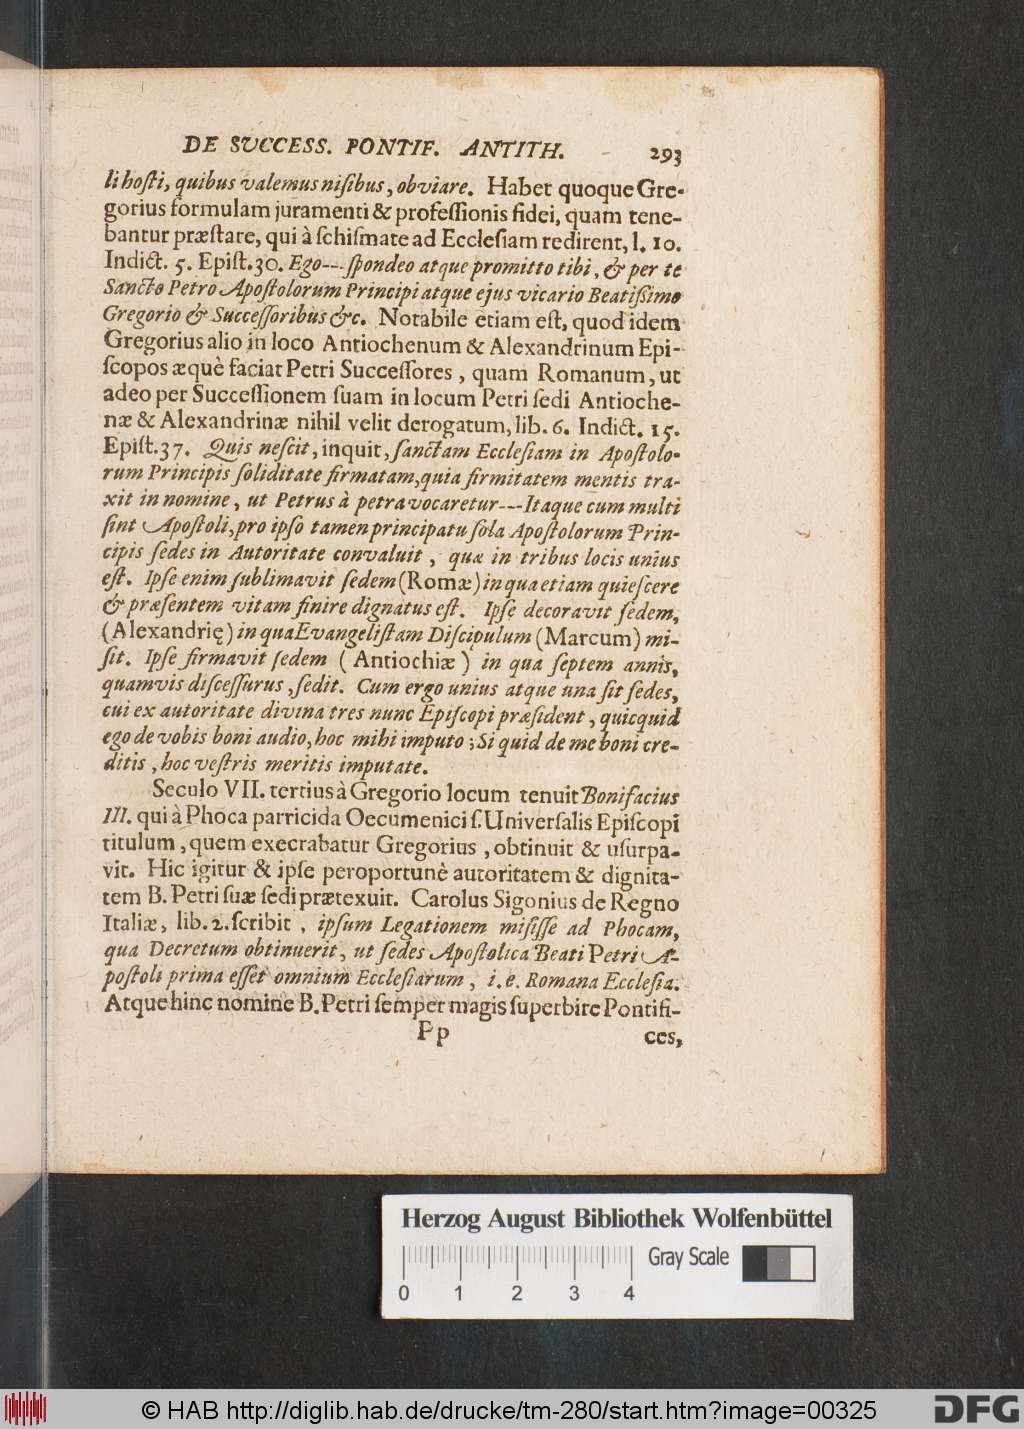 DE SVCCESS. PONTIF. ANTITH. 293
li hoſti, quibus valemus niſibus, obviare. Habet quoque Gre-
gorius formulam juramenti & profeſſionis fidei, quam tene-
bantur præſtare, qui à ſchiſmate ad Eccleſiam redirent, l. 10.
Indict. 5. Epiſt. 30. Ego--- ſpondeo atque promitto tibi, & per te
Sancto Petro Apoſtolorum Principi atque ejus vicario Beatiſſimo
Gregorio & Succeſſoribus &c. Notabile etiam eſt, quod idem
Gregorius alio in loco Antiochenum & Alexandrinum Epi-
ſcopos æquè faciat Petri Succeſſores, quam Romanum, ut
adeo per Succeſſionem ſuam in locum Petri ſedi Antioche-
næ & Alexandrinæ nihil velit derogatum, lib. 6. Indict. 15.
Epiſt. 37. Quis neſcit, inquit, ſanctam Eccleſiam in Apoſtolo-
rum Principis ſoliditate firmatam, quia firmitatem mentis tra-
xit in nomine, ut Petrus à petra vocaretur---Itaque cum multi
ſint Apoſtoli, pro ipſo tamen principatu ſola Apoſtolorum Prin-
cipis ſedes in Autoritate convaluit, quæ in tribus locis unius
eſt. Ipſe enim ſublimavit ſedem (Romæ) in qua etiam quieſcere
& præſentem vitam finire dignatus eſt. Ipſe decoravit ſedem,
(Alexandrię) in qua Evangeliſtam Diſcipulum (Marcum) mi-
ſit. Ipſe firmavit ſedem (Antiochiæ) in qua ſeptem annis,
quamvis diſceſſurus, ſedit. Cum ergo unius atque una ſit ſedes,
cui ex autoritate divina tres nunc Epiſcopi præſident, quicquid
ego de vobis boni audio, hoc mihi imputo; Si quid de me boni cre-
ditis, hoc veſtris meritis imputate.
Seculo VII. tertius à Gregorio locum tenuit Bonifacius
III. qui à Phoca parricida Oecumenici ſ. Univerſalis Epiſcopi
titulum, quem execrabatur Gregorius, obtinuit & uſurpa-
vit. Hic igitur & ipſe peroportunè autoritatem & dignita-
tem B. Petri ſuæ ſedi prætexuit. Carolus Sigonius de Regno
Italiæ, lib. 2. ſcribit, ipſum Legationem miſiſſe ad Phocam,
qua Decretum obtinuerit, ut ſedes Apoſtolica Beati Petri A-
poſtoli prima eſſet omnium Eccleſiarum, i. e. Romana Eccleſia.
Atque hinc nomine B. Petri ſemper magis ſuperbire Pontifi-
Pp ces,
Herzog August Bibliothek Wolfenbüttel
Gray Scale
0 1 2 3 4
© HAB http://diglib.hab.de/drucke/tm-280/start.htm?image=00325
DFG